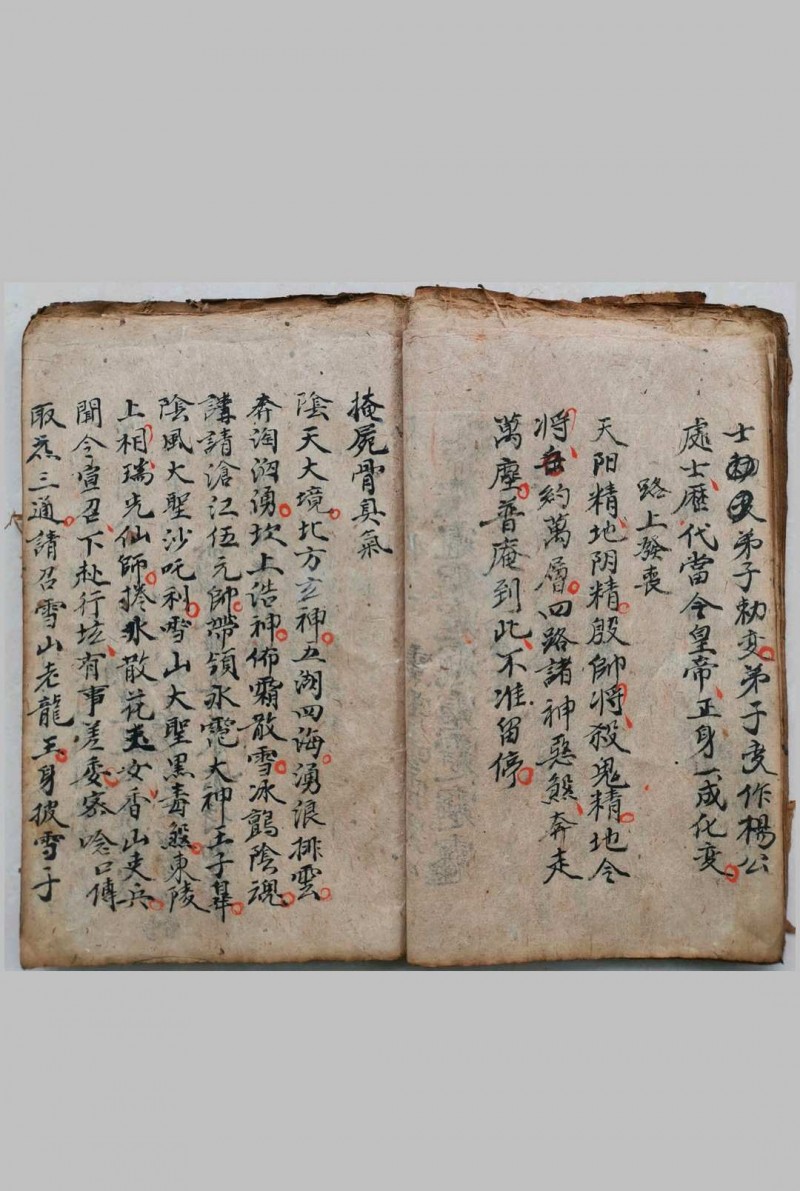 士弟子勅变弟子变作楊公
處士歷代當今皇帝正身一成化变
路上發喪
天阳精地阴精殷帥將殺鬼精地令
將兵約萬層四路諸神惡煞奔走
萬塵普庵到此不准留停
掩屍骨臭氣
陰天大境北方玄神五湖四海湧浪排雲
奔淘汹湧坎上浩神佈霜散雪冰鷂陰魂
講請滄江伍元帥帶領氷雹大神王子
陰風大聖沙吒利雪山大聖黑毒煞東陵
上相瑞光仙師捲氷散花玉女香山吏兵
聞令宣召下赴行坛有事差委容唸口傳
取煞三通請召雪山老龍王身披雪子